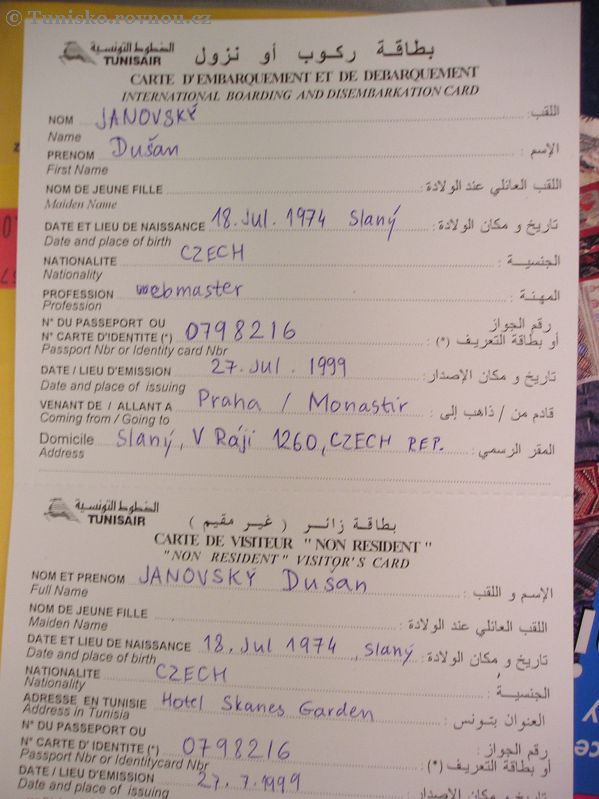 © Tunisko.rovnou.cz
الخطوط التونسية
TUNISAIR
بطاقة ركوب أو نزول
CARTE D'EMBARQUEMENT ET DE DEBARQUEMENT
INTERNATIONAL BOARDING AND DISEMBARKATION CARD
NOM JANOVSKÝ اللقب:
Name
PRENOM Dušan الإسم :
First Name
NOM DE JEUNE FILLE اللقب العائلي عند الولادة:
Maiden Name
DATE ET LIEU DE NAISSANCE 18. Jul. 1974 Slaný تاريخ و مكان الولادة:
Date and place of birth
NATIONALITE CZECH الجنسية :
Nationality
PROFESSION webmaster المهنة :
Profession
N° DU PASSEPORT OU رقم الجواز
N° CARTE D'IDENTITE (*) 0798216 أو بطاقة التعريف (*) :
Passport Nbr or Identity card Nbr
DATE / LIEU D'EMISSION 27. Jul. 1999 تاريخ و مكان الإصدار:
Date and place of issuing
VENANT DE / ALLANT A Praha / Monastir قادم من / ذاهب إلى :
Coming from / Going to
Domicile Slaný, V Ráji 1260, CZECH REP. المقر الرسمي :
Address
الخطوط التونسية
TUNISAIR
بطاقة زائر ( غير مقيم )
CARTE DE VISITEUR "NON RESIDENT"
"NON RESIDENT" VISITOR'S CARD
NOM ET PRENOM JANOVSKÝ Dušan الإسم و اللقب :
Full Name
NOM DE JEUNE FILLE اللقب العائلي عند الولادة:
Maiden Name
DATE ET LIEU DE NAISSANCE 18. Jul 1974, Slaný تاريخ و مكان الولادة:
Date and place of birth
NATIONALITE CZECH الجنسية :
Nationality
ADRESSE EN TUNISIE Hotel Skanes Garden العنوان بتونس :
Address in Tunisia
N° DU PASSEPORT OU رقم الجواز
N° CARTE D'IDENTITE (*) 0798216 أو بطاقة التعريف (*) :
Passport Nbr or Identitycard Nbr
DATE / LIEU D'EMISSION 27. 7. 1999 تاريخ و مكان الإصدار
Date and place of issuing